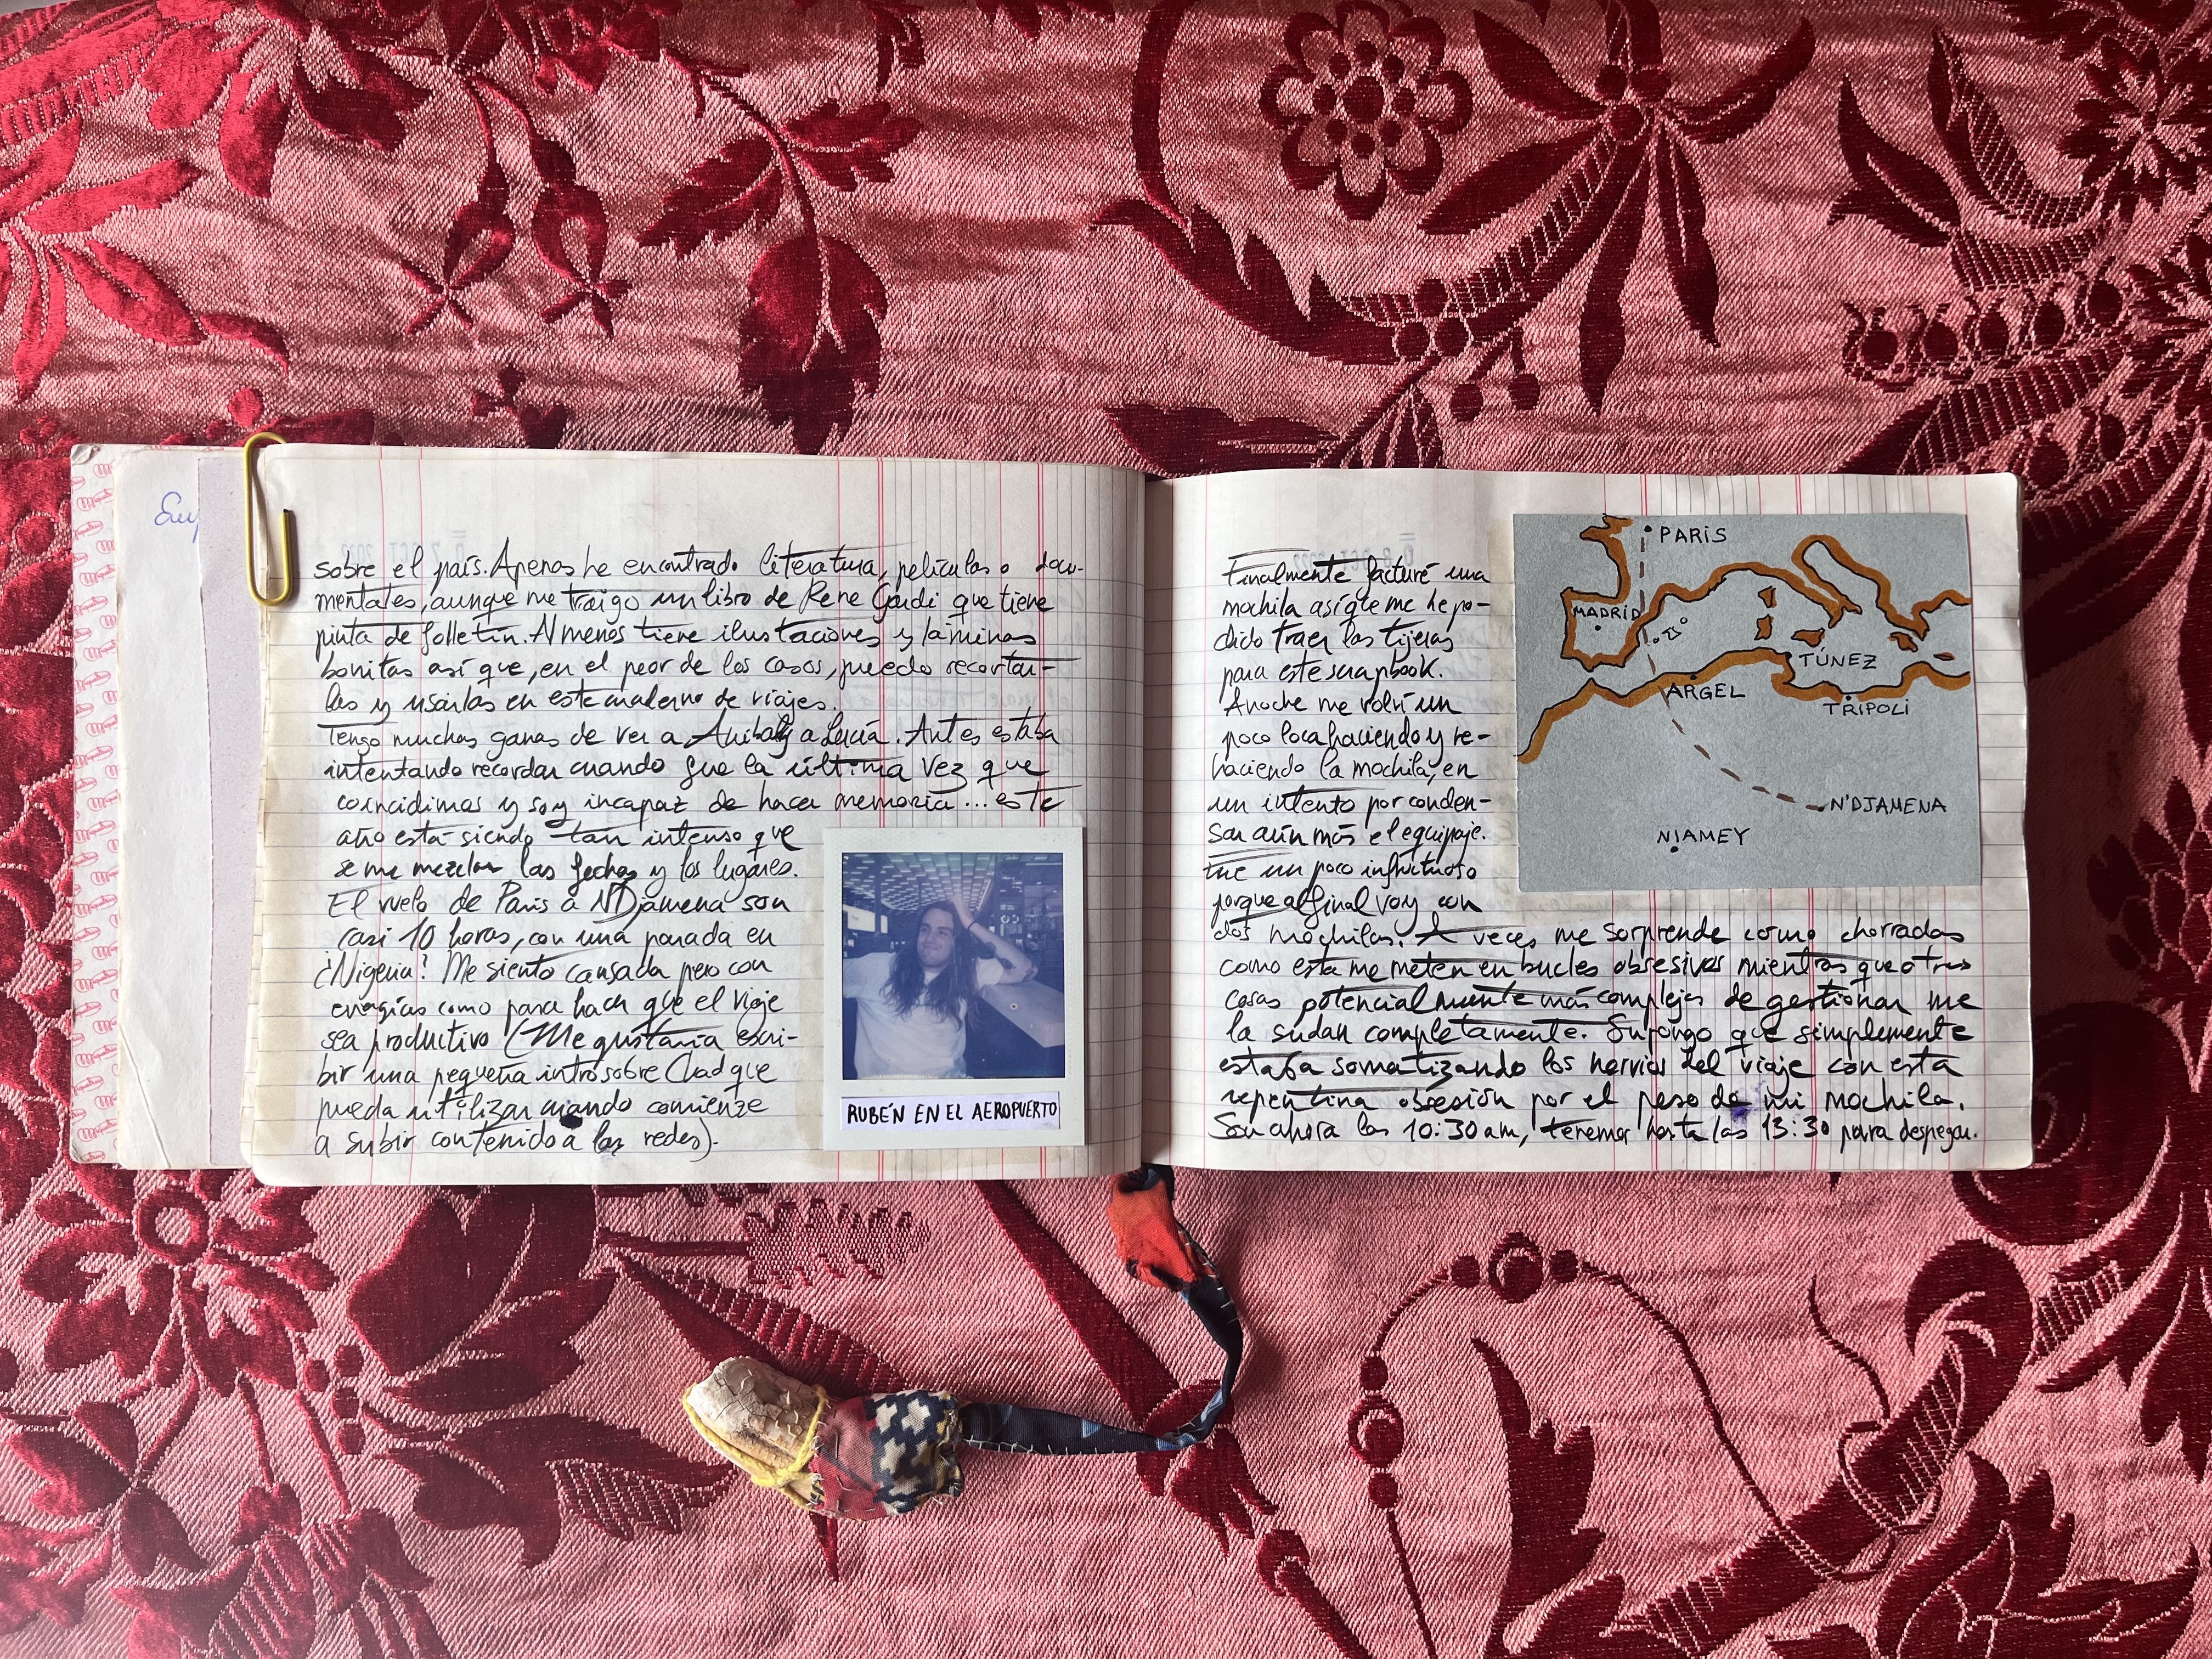 sobre el país. Apenas he encontrado literatura, películas o docu-
mentales, aunque me traigo un libro de Rene Gardi que tiene
pinta de folletín. Al menos tiene ilustaciones y láminas
bonitas así que, en el peor de los casos, puedo recortar-
las y usarlas en este cuaderno de viajes.
Tengo muchas ganas de ver a Anibal y a Lucía. Antes estaba
intentando recordar cuando fue la última vez que
coincidimos y soy incapaz de hacer memoria... este
año está siendo tan intenso que
se me mezclan las fechas y los lugares.
El vuelo de Paris a N'Djamena son
casi 10 horas, con una parada en
¿Nigeria? Me siento cansada pero con
energías como para hacer que el viaje
sea productivo (Me gustaría escri-
bir una pequeña intro sobre Chad que
pueda utilizar cuando comience
a subir contenido a las redes).
RUBÉN EN EL AEROPUERTO
Finalmente facturé una
mochila así que me he po-
dido traer las tijeras
para este scrapbook.
Anoche me volví un
poco loca haciendo y re-
haciendo la mochila, en
un intento por conden-
sar aún más el equipaje.
Fue un poco infructuoso
porque al final voy con
dos mochilas. A veces me sorprende como chorradas
como esta me meten en bucles obsesivos mientras que otras
cosas potencialmente más complejas de gestionar me
la sudan completamente. Supongo que simplemente
estaba somatizando los nervios del viaje con esta
repentina obsesión por el peso de mi mochila.
Son ahora las 10:30 am, tenemos hasta las 13:30 para despegar.
PARÍS
MADRID
TÚNEZ
ARGEL
TRÍPOLI
N'DJAMENA
NIAMEY